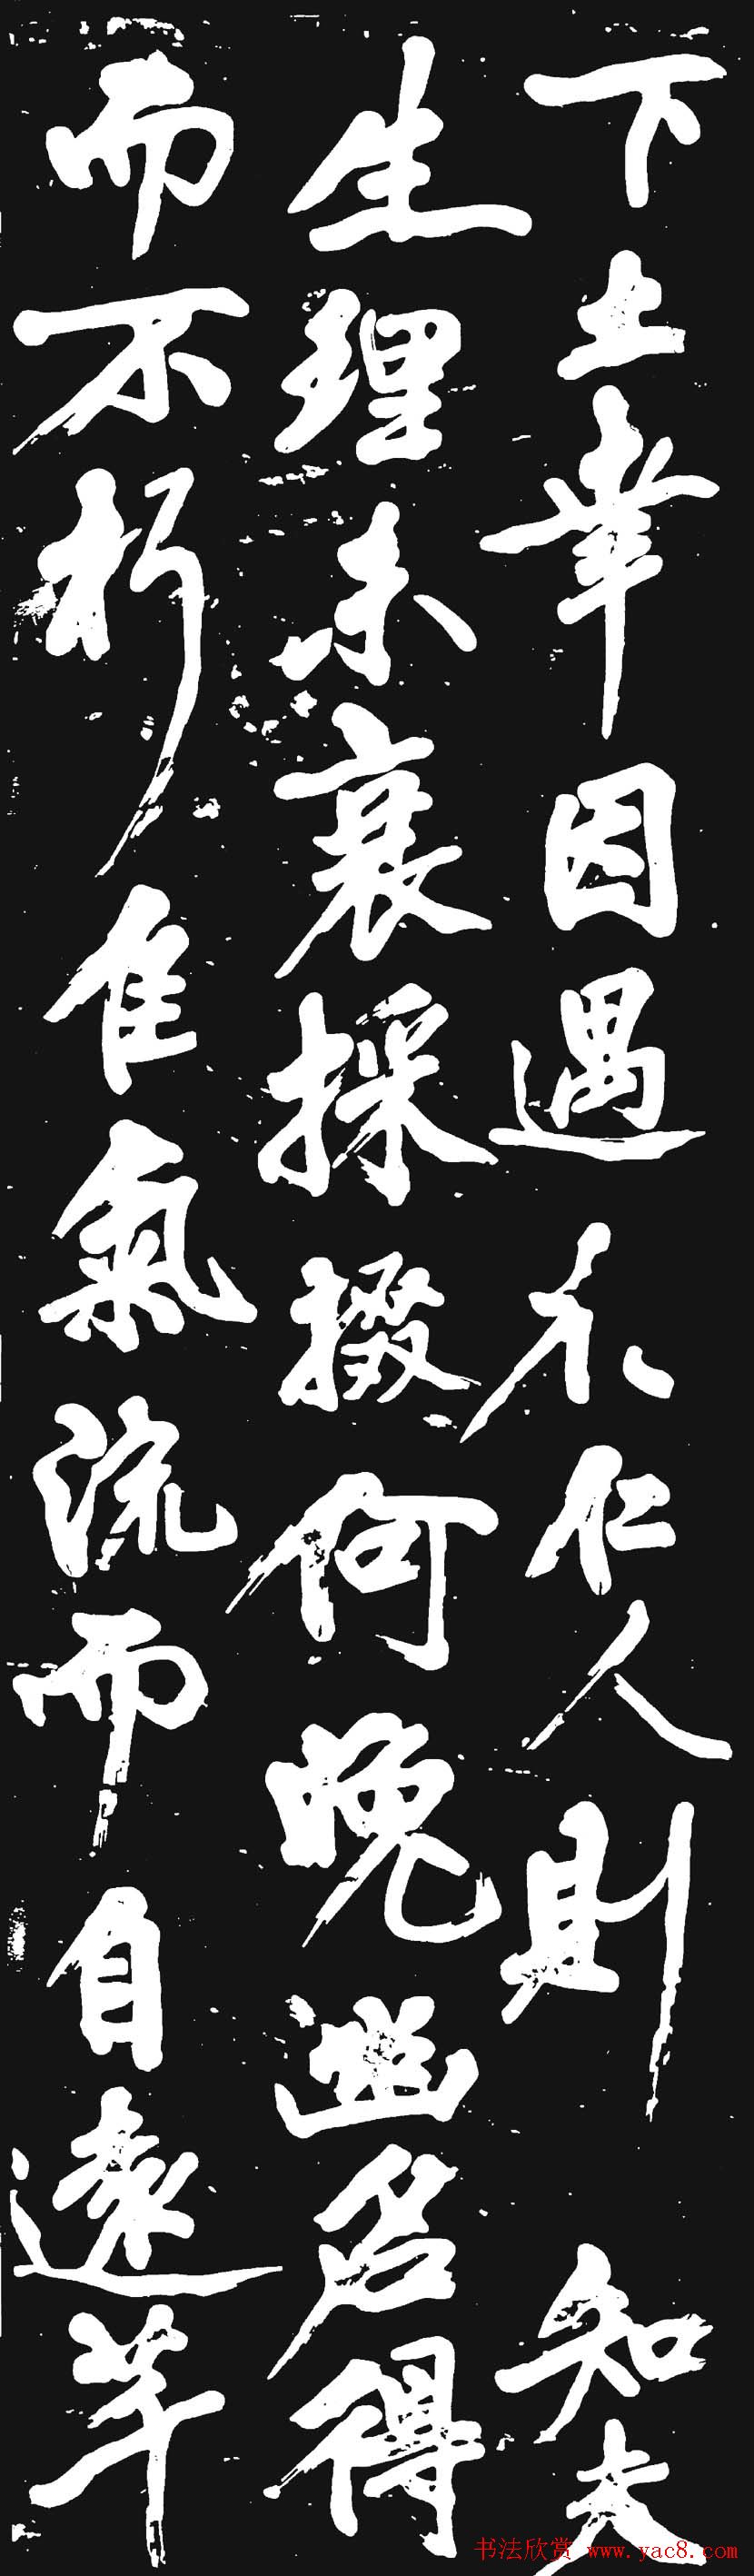 下土幸因遇不仁人則知夫
生理未衰採掇何晚幽名得
而不朽隹氣流而自遠羊
书法欣赏 www.yac8.com